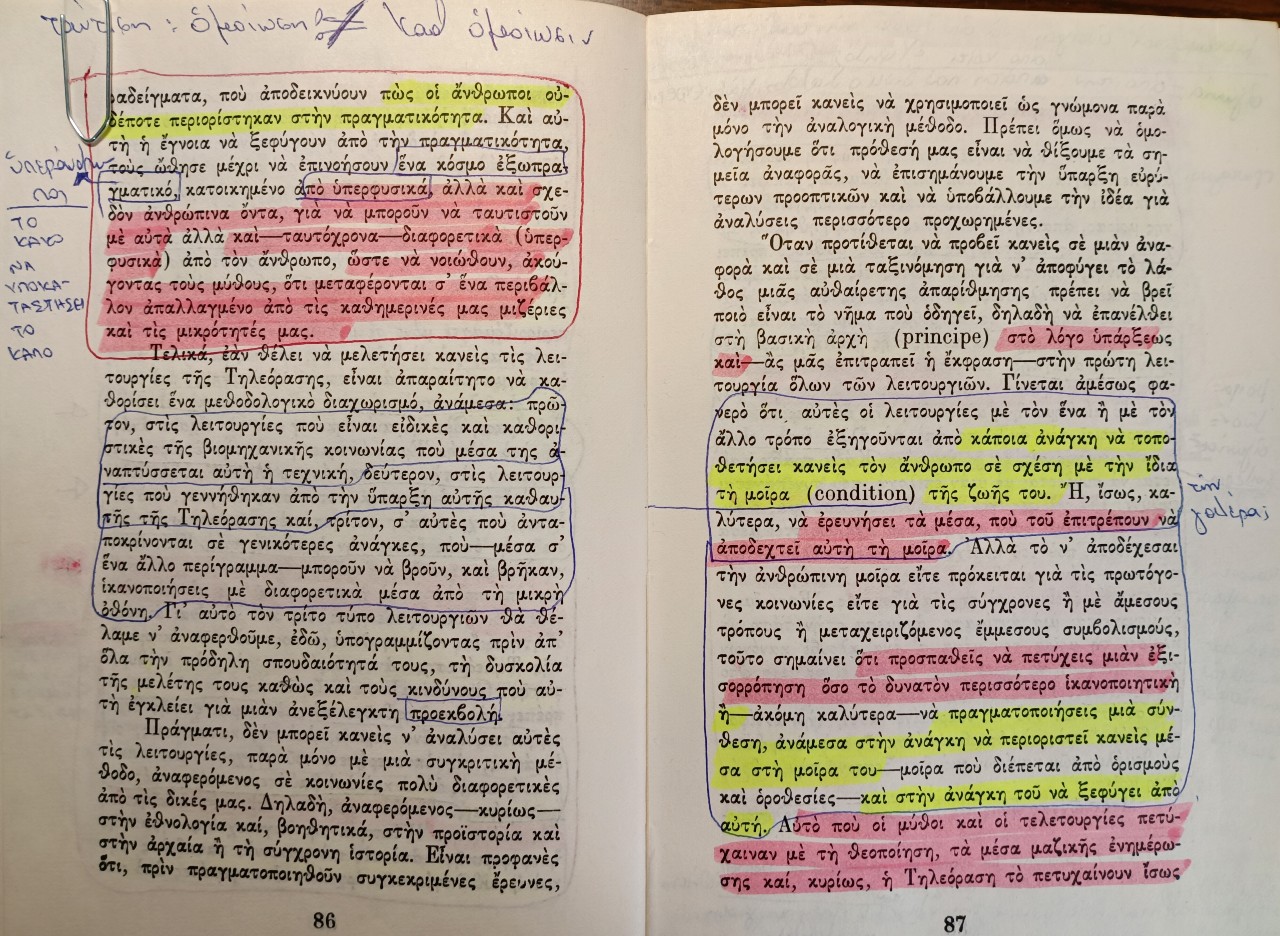 ταύτιση : ὁμοίωση καθ ὁμοίωσιν
ραδείγματα, ποὺ ἀποδεικνύουν πὼς οἱ ἄνθρωποι οὐ-
δέποτε περιορίστηκαν στὴν πραγματικότητα. Καὶ αὐ-
τὴ ἡ ἔγνοια νὰ ξεφύγουν ἀπὸ τὴν πραγματικότητα,
τοὺς ὤθησε μέχρι νὰ ἐπινοήσουν ἕνα κόσμο ἐξωπρα-
γματικό, κατοικημένο ἀπὸ ὑπερφυσικά, ἀλλὰ καὶ σχε-
δὸν ἀνθρώπινα ὄντα, γιὰ νὰ μποροῦν νὰ ταυτιστοῦν
μὲ αὐτὰ ἀλλὰ καὶ—ταυτόχρονα—διαφορετικὰ (ὑπερ-
φυσικὰ) ἀπὸ τὸν ἄνθρωπο, ὥστε νὰ νοιώθουν, ἀκού-
γοντας τοὺς μύθους, ὅτι μεταφέρονται σ' ἕνα περιβάλ-
λον ἀπαλλαγμένο ἀπὸ τὶς καθημερινές μας μιζέριες
καὶ τὶς μικρότητές μας.
Τελικά, ἐὰν θέλει νὰ μελετήσει κανεὶς τὶς λει-
τουργίες τῆς Τηλεόρασης, εἶναι ἀπαραίτητο νὰ κα-
θορίσει ἕνα μεθοδολογικὸ διαχωρισμό, ἀνάμεσα: πρῶ-
τον, στὶς λειτουργίες ποὺ εἶναι εἰδικὲς καὶ καθορι-
στικὲς τῆς βιομηχανικῆς κοινωνίας ποὺ μέσα της ἀ-
ναπτύσσεται αὐτὴ ἡ τεχνική, δεύτερον, στὶς λειτουρ-
γίες ποὺ γεννήθηκαν ἀπὸ τὴν ὕπαρξη αὐτῆς καθαυ-
τῆς τῆς Τηλεόρασης καί, τρίτον, σ' αὐτὲς ποὺ ἀντα-
ποκρίνονται σὲ γενικότερες ἀνάγκες, ποὺ—μέσα σ'
ἕνα ἄλλο περίγραμμα—μποροῦν νὰ βροῦν, καὶ βρῆκαν,
ἱκανοποιήσεις μὲ διαφορετικὰ μέσα ἀπὸ τὴ μικρὴ
ὀθόνη. Γι' αὐτὸ τὸν τρίτο τύπο λειτουργιῶν θὰ θέ-
λαμε ν' ἀναφερθοῦμε, ἐδῶ, ὑπογραμμίζοντας πρὶν ἀπ'
ὅλα τὴν πρόδηλη σπουδαιότητά τους, τὴ δυσκολία
τῆς μελέτης τους καθὼς καὶ τοὺς κινδύνους ποὺ αὐ-
τὴ ἐγκλείει γιὰ μιὰν ἀνεξέλεγκτη προεκβολή.
Πράγματι, δὲν μπορεῖ κανεὶς ν' ἀναλύσει αὐτὲς
τὶς λειτουργίες, παρὰ μόνο μὲ μιὰ συγκριτικὴ μέ-
θοδο, ἀναφερόμενος σὲ κοινωνίες πολὺ διαφορετικὲς
ἀπὸ τὶς δικές μας. Δηλαδή, ἀναφερόμενος—κυρίως—
στὴν ἐθνολογία καί, βοηθητικά, στὴν προϊστορία καὶ
στὴν ἀρχαία ἢ τὴ σύγχρονη ἱστορία. Εἶναι προφανὲς
ὅτι, πρὶν πραγματοποιηθοῦν συγκεκριμένες ἔρευνες,
86
ΤΟ
ΚΑΚΟ
ΝΑ
ΥΠΟΚΑ-
ΤΑΣΤΗΣΕΙ
ΤΟ
ΚΑΛΟ
δὲν μπορεῖ κανεὶς νὰ χρησιμοποιεῖ ὡς γνώμονα παρὰ
μόνο τὴν ἀναλογικὴ μέθοδο. Πρέπει ὅμως νὰ ὁμο-
λογήσουμε ὅτι πρόθεσή μας εἶναι νὰ θίξουμε τὰ ση-
μεῖα ἀναφορᾶς, νὰ ἐπισημάνουμε τὴν ὕπαρξη εὐρύ-
τερων προοπτικῶν καὶ νὰ ὑποβάλλουμε τὴν ἰδέα γιὰ
ἀναλύσεις περισσότερο προχωρημένες.
Ὅταν προτίθεται νὰ προβεῖ κανεὶς σὲ μιὰν ἀνα-
φορὰ καὶ σὲ μιὰ ταξινόμηση γιὰ ν' ἀποφύγει τὸ λά-
θος μιᾶς αὐθαίρετης ἀπαρίθμησης πρέπει νὰ βρεῖ
ποιὸ εἶναι τὸ νῆμα ποὺ ὁδηγεῖ, δηλαδὴ νὰ ἐπανέλθει
στὴ βασικὴ ἀρχὴ (principe) στὸ λόγο ὑπάρξεως
καὶ—ἂς μᾶς ἐπιτραπεῖ ἡ ἔκφραση—στὴν πρώτη λει-
τουργία ὅλων τῶν λειτουργιῶν. Γίνεται ἀμέσως φα-
νερὸ ὅτι αὐτὲς οἱ λειτουργίες μὲ τὸν ἕνα ἢ μὲ τὸν
ἄλλο τρόπο ἐξηγοῦνται ἀπὸ κάποια ἀνάγκη νὰ τοπο-
θετήσει κανεὶς τὸν ἄνθρωπο σὲ σχέση μὲ τὴν ἴδια
τὴ μοῖρα (condition) τῆς ζωῆς του. Ἤ, ἴσως, κα-
λύτερα, νὰ ἐρευνήσει τὰ μέσα, ποὺ τοῦ ἐπιτρέπουν νὰ
ἀποδεχτεῖ αὐτὴ τὴ μοῖρα. Ἀλλὰ τὸ ν' ἀποδέχεσαι
τὴν ἀνθρώπινη μοῖρα εἴτε πρόκειται γιὰ τὶς πρωτόγο-
νες κοινωνίες εἴτε γιὰ τὶς σύγχρονες ἢ μὲ ἄμεσους
τρόπους ἢ μεταχειριζόμενος ἔμμεσους συμβολισμούς,
τοῦτο σημαίνει ὅτι προσπαθεῖς νὰ πετύχεις μιὰν ἐξι-
σορρόπηση ὅσο τὸ δυνατὸν περισσότερο ἱκανοποιητικὴ
ἢ—ἀκόμη καλύτερα—νὰ πραγματοποιήσεις μιὰ σύν-
θεση, ἀνάμεσα στὴν ἀνάγκη νὰ περιοριστεῖ κανεὶς μέ-
σα στὴ μοῖρα του—μοῖρα ποὺ διέπεται ἀπὸ ὁρισμοὺς
καὶ ὁροθεσίες—καὶ στὴν ἀνάγκη τοῦ νὰ ξεφύγει ἀπὸ
αὐτή. Αὐτὸ ποὺ οἱ μύθοι καὶ οἱ τελετουργίες πετύ-
χαιναν μὲ τὴ θεοποίηση, τὰ μέσα μαζικῆς ἐνημέρω-
σης καί, κυρίως, ἡ Τηλεόραση τὸ πετυχαίνουν ἴσως
87